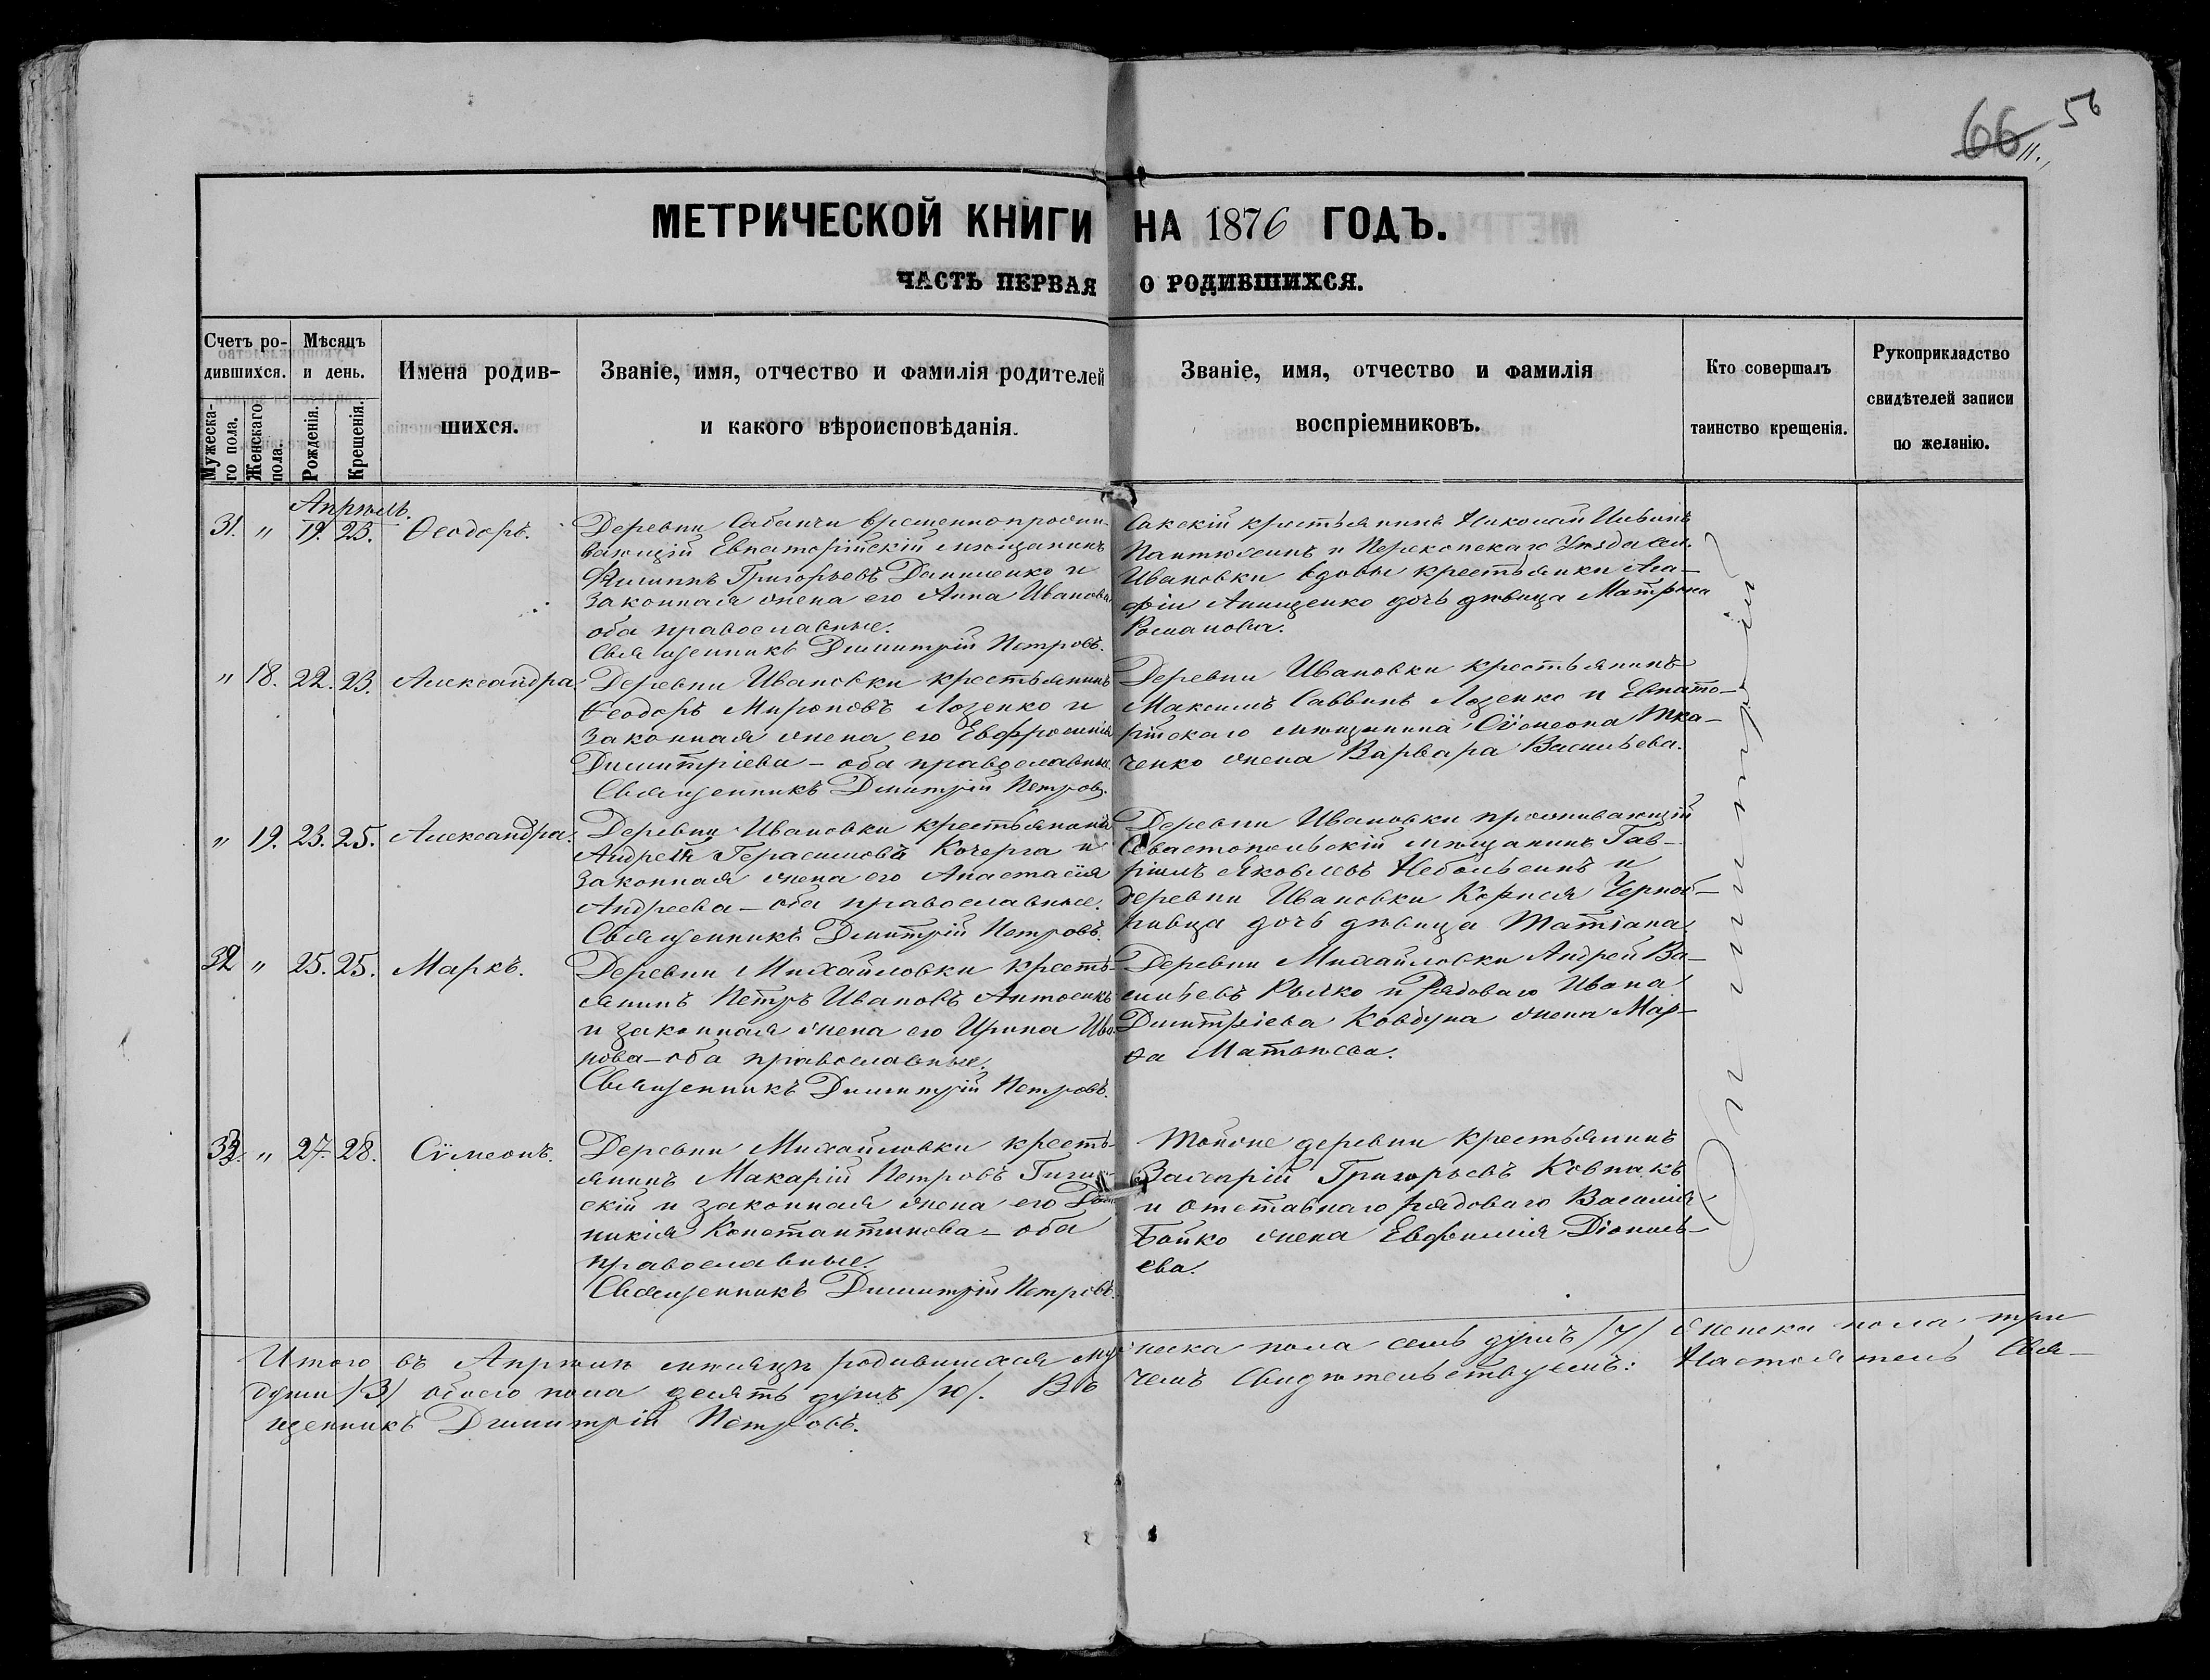 66 56
11.,
МЕТРИЧЕСКОЙ КНИГИ НА 1876 ГОДЪ.
ЧАСТЬ ПЕРВАЯ О РОДИВШИХСЯ.
Счетъ ро-
дившихся.
Мужеска-
го пола.
Женскаго
пола.
Мѣсяцъ
и день.
Рожденія.
Крещенія.
Имена родив-
шихся.
Званіе, имя, отчество и фамилія родителей
и какого вѣроисповѣданія.
Званіе, имя, отчество и фамилія
воспріемниковъ.
Кто совершалъ
таинство крещенія.
Рукоприкладство
свидѣтелей записи
по желанію.
Апрѣль.
31. " 19. 23. Ѳеодоръ.
Деревни Сабанчи временно прожи-
вающій Евпаторійскій мѣщанинъ
Филиппъ Григорьевъ Даниленко и
законная жена его Анна Иванова
оба православные.
Священникъ Димитрій Петровъ.
Сакскій крестьянинъ Николай Ильинъ
Пантюхинъ и Перекопскаго Уѣзда сел.
Ивановки вдовы крестьянки Ага-
фіи Анищенко дочь дѣвица Матрона
Романова.
" 18. 22. 23. Александра.
Деревни Ивановки крестьянинъ
Ѳеодоръ Мироновъ Лозенко и
законная жена его Евфросинія
Димитріева - оба православные.
Священникъ Димитрій Петровъ.
Деревни Ивановки крестьянинъ
Максимъ Саввинъ Лозенко и Евпато-
рійскаго мѣщанина Сѵмеона Тка-
ченко жена Варвара Васильева.
" 19. 23. 25. Александра.
Деревни Ивановки крестьянинъ
Андрей Герасимовъ Кочерга и
законная жена его Анастасія
Андреева - оба православные.
Священникъ Димитрій Петровъ.
Деревни Ивановки проживающій
Севастопольскій мѣщанинъ Гав-
ріилъ Яковлевъ Небольсинъ и
деревни Ивановки Корнея Черной-
ивца дочь дѣвица Татіана.
32 " 25. 25. Маркъ.
Деревни Михайловки кресть-
янинъ Петръ Ивановъ Антосикъ
и законная жена его Ирина Ива-
нова - оба православные.
Священникъ Димитрій Петровъ.
Деревни Михайловки Андрей Ва-
сильевъ Рылко и Рядоваго Ивана
Димитріева Ковбуна жена Мар-
ѳа Матвѣева.
33. " 27. 28. Сѵмеонъ.
Деревни Михайловки кресть-
янинъ Макарій Петровъ
скій и законная жена его Дом-
никія Константинова - оба
православные.
Священникъ Димитрій Петровъ.
Тойже деревни крестьянинъ
Захарій Григорьевъ Ковпакъ
и отставнаго рядоваго Василія
Бойко жена Евфимія Діонись-
ева.
Димитрій
Итого въ Апрѣлѣ мѣсяцѣ родившихся мужеска пола семь душъ /7/ женска пола три
души /3/ обоего пола десять душъ /10/. Въ чемъ свидѣтельствуемъ: Настоятель Свя-
щенникъ Димитрій Петровъ.